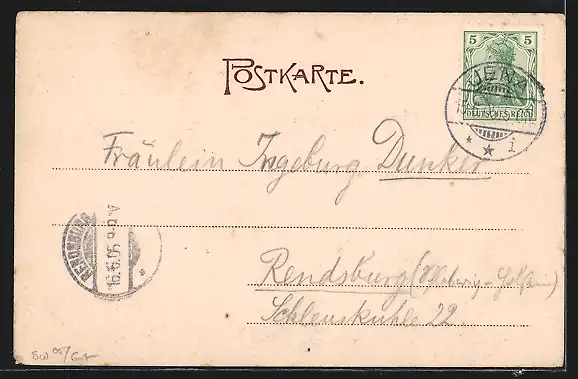 POSTKARTE.
5 5
DEUTSCHES REICH
JENA
* * i
Fräulein Ingeburg Dunker
RENDSBURG
16.6.05 8-9 V
Rendsburg (Schleswig-Holstein)
Schleuskuhle 22.